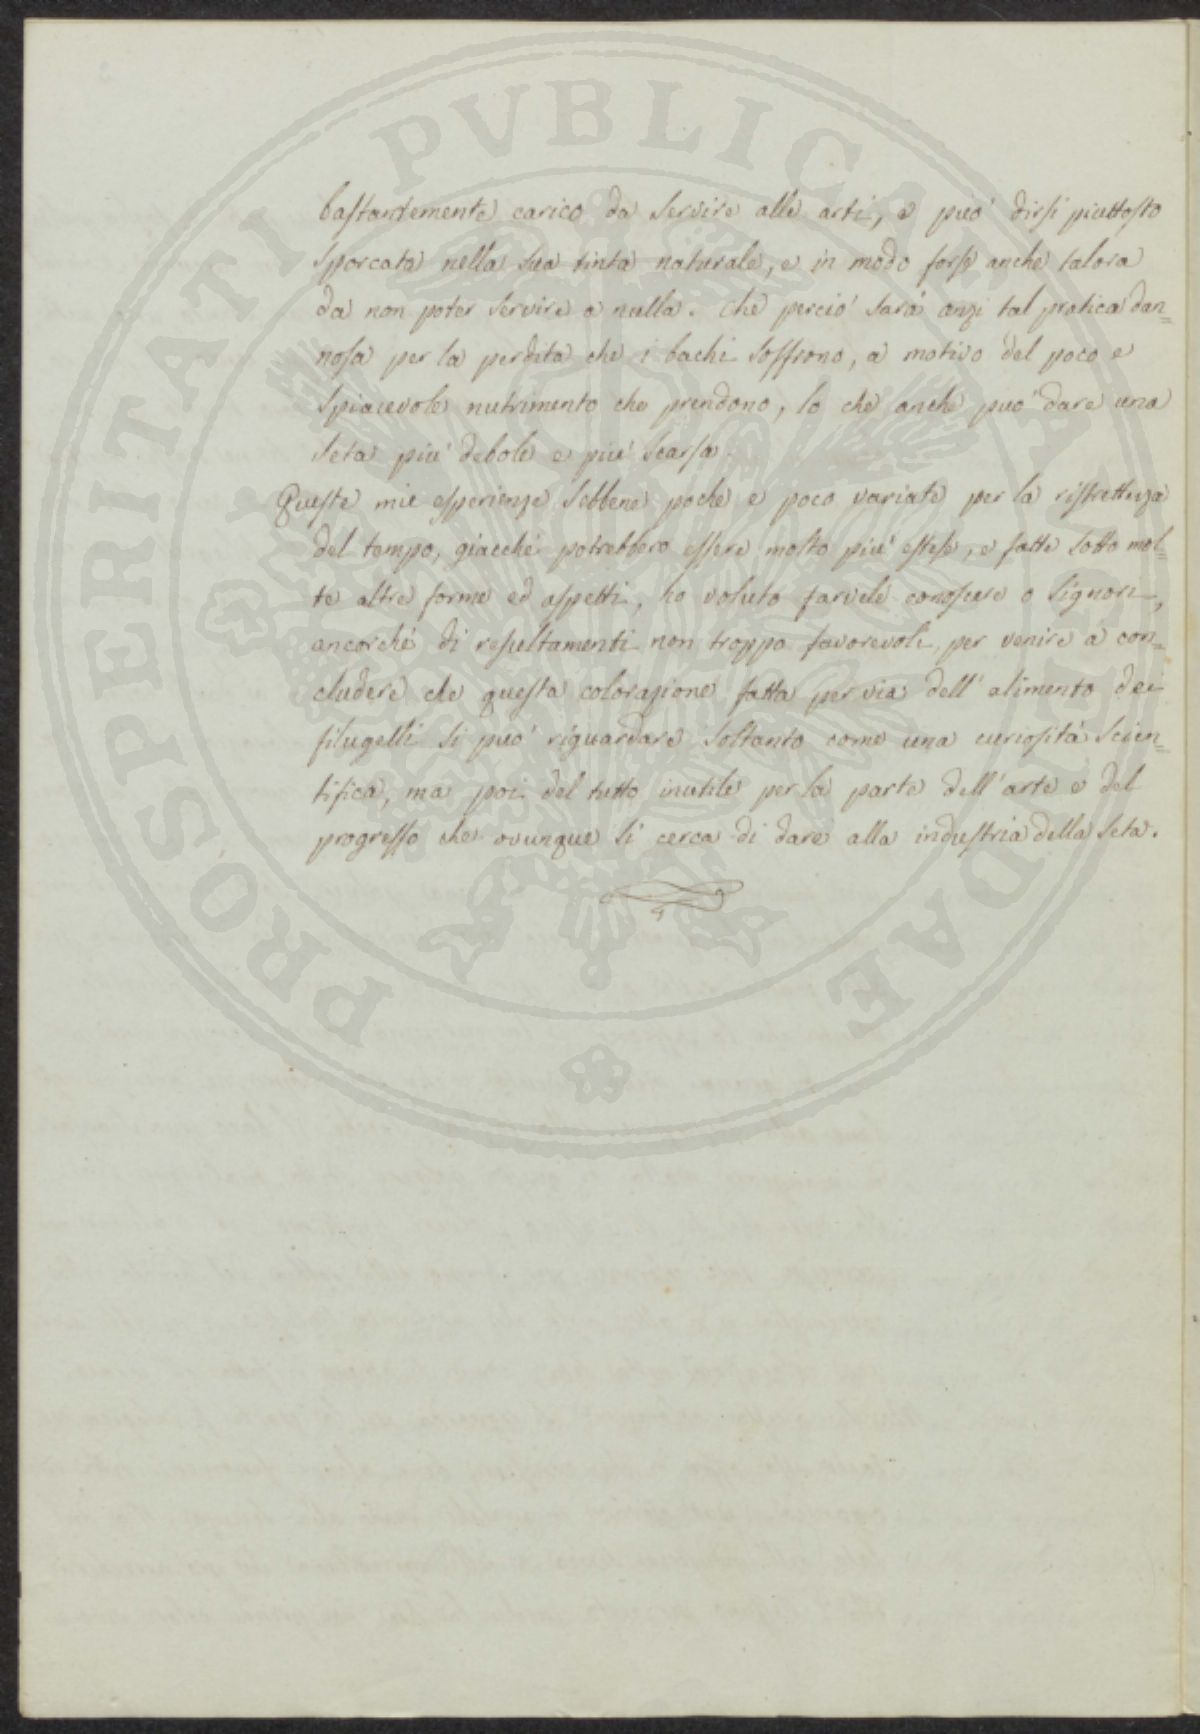 PROSPERITATI PVBLICAE AVGENDAE
bastantemente carico da servire alle arti, e può dirsi piuttosto
sporcata nella sua tinta naturale, e in modo forse anche talora
da non poter servire a nulla. Che perciò sarà anzi tal pratica dan=
nosa per la perdita che i bachi soffrono, a motivo del poco e
spiacevole nutrimento che prendono, lo che anche può dare una
seta più debole e più scarsa.
Queste mie esperienze sebbene poche e poco variate per la ristrettezza
del tempo, giacché potrebbero essere molto più estese, e fatte sotto mol=
te altre forme ed aspetti, ho voluto farvele conoscere o Signori,
ancorché di resultamenti non troppo favorevoli, per venire a con=
cludere che questa colorazione fatta per via dell' alimento dei
filugelli si può riguardare soltanto come una curiosità scien=
tifica, ma poi del tutto inutile per la parte dell' arte e del
progresso che ovunque si cerca di dare alla industria della seta.